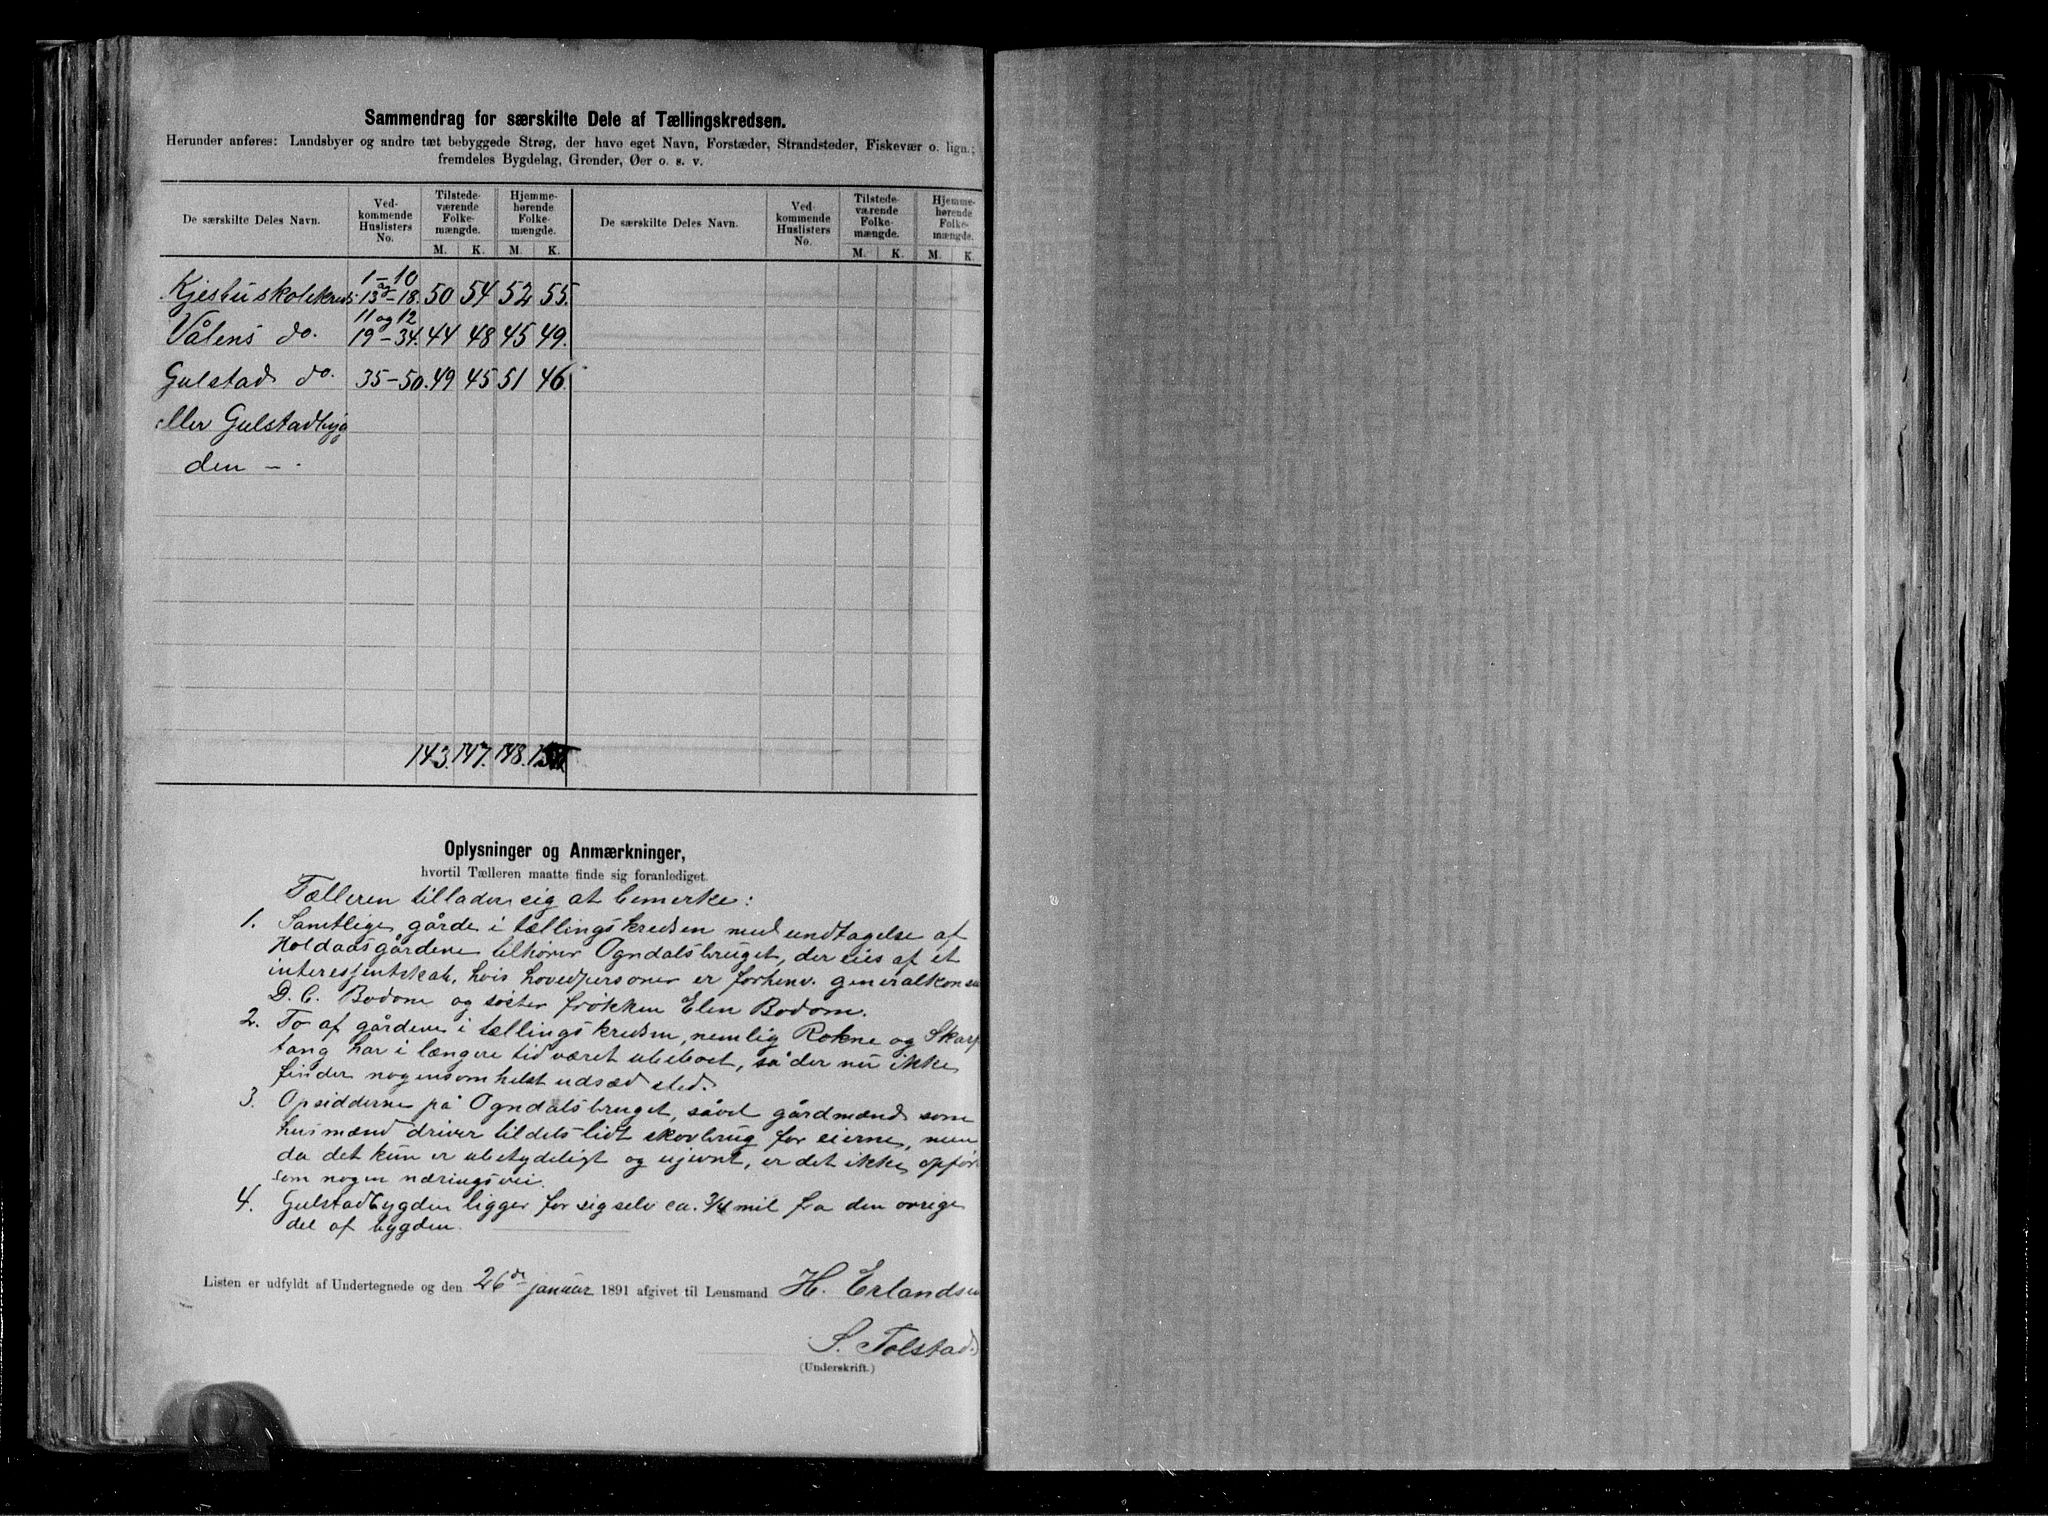 Sammendrag for særskilte Dele af Tællingskredsen.
Herunder anføres: Landsbyer og andre tæt bebyggede Strøg, der have eget Navn, Forstæder, Strandsteder, Fiskevær o. lign.;
fremdeles Bygdelag, Grender, Øer o. s. v.
De særskilte Deles Navn. Ved-kommende Huslisters No. Tilstede-værende Folke-mængde. Hjemme-hørende Folke-mængde. De særskilte Deles Navn. Ved-kommende Huslisters No. Tilstede-værende Folke-mængde. Hjemme-hørende Folke-mængde.
M. K. M. K. M. K. M. K.
1-10 og
13-18. 50 54 52 55.
11 og 12
Vålens do. 19-34. 44 48 45 49.
Gulstad do. 35-50. 49 45 51 46.
eller Gulstadbyg
den - .
143. 147. 148.
Oplysninger og Anmærkninger,
hvortil Tælleren maatte finde sig foranlediget.
Tælleren tillader sig at bemerke:
1. Samtlige gårde i tællingskredsen med undtagelse af
Holdaasgårdene tilhører Ogndalsbruget, der eies af et
interessentskab, hvis hovedpersoner er forhenv. generalkonsu
D. C. Bodom og søster frøkken Elen Bodom.
2. To af gårdene i tællingskredsen, nemlig Rokne og Skarp
tang har i længere tid været ubeboet, så der nu ikke
finder nogensomhelst udsæd sted.
3. Opsidderne på Ogndalsbruget, såvel gårdmænd som
husmænd driver tildels lidt skovbrug for eierne, men
da det kun er ubetydeligt og ujevnt, er det ikke opført
som nogen næringsvei.
4. Gulstadbygden ligger for sig selv ca. 3/4 mil fra den øvrige
del af bygden.
Listen er udfyldt af Undertegnede og den 26de januar 1891 afgivet til Lensmand H. Erlandsen
S. Tolstad.
(Underskrift.)